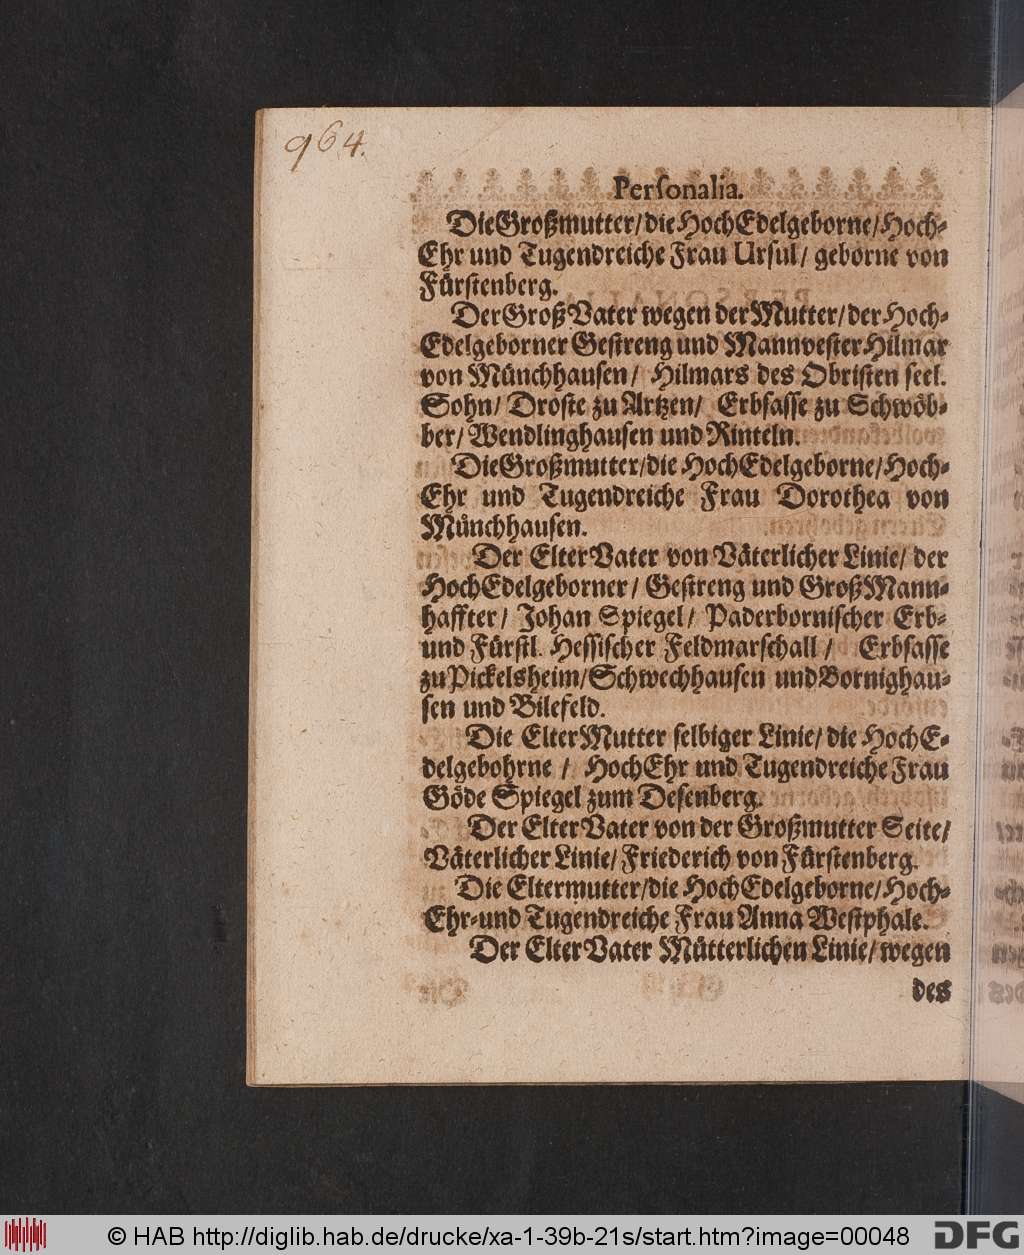 964.
Personalia.
Die Großmutter/ die HochEdelgeborne/ Hoch-
Ehr und Tugendreiche Frau Ursul/ geborne von
Fürstenberg.
Der Groß Vater wegen der Mutter/ der Hoch-
Edelgeborner Gestreng und Mannvester Hilmar
von Münchhausen/ Hilmars des Obristen seel.
Sohn/ Droste zu Artzen/ Erbsasse zu Schwöb-
ber/ Wendlinghausen und Rinteln.
Die Großmutter/ die HochEdelgeborne/ Hoch-
Ehr und Tugendreiche Frau Dorothea von
Münchhausen.
Der Elter Vater von Väterlicher Linie/ der
HochEdelgeborner/ Gestreng und Groß Mann-
haffter/ Johan Spiegel/ Paderbornischer Erb-
und Fürstl. Hessischer Feldmarschall/ Erbsasse
zu Pickelsheim/ Schwechhausen und Bornighau-
sen und Bilefeld.
Die ElterMutter selbiger Linie/ die HochE-
delgebohrne/ HochEhr und Tugendreiche Frau
Göde Spiegel zum Desenberg.
Der Elter Vater von der Großmutter Seite/
Väterlicher Linie/ Friederich von Fürstenberg.
Die Eltermutter/ die HochEdelgeborne/ Hoch-
Ehr-und Tugendreiche Frau Anna Westphale.
Der Elter Vater Mütterlichen Linie/ wegen
des
© HAB http://diglib.hab.de/drucke/xa-1-39b-21s/start.htm?image=00048
DFG